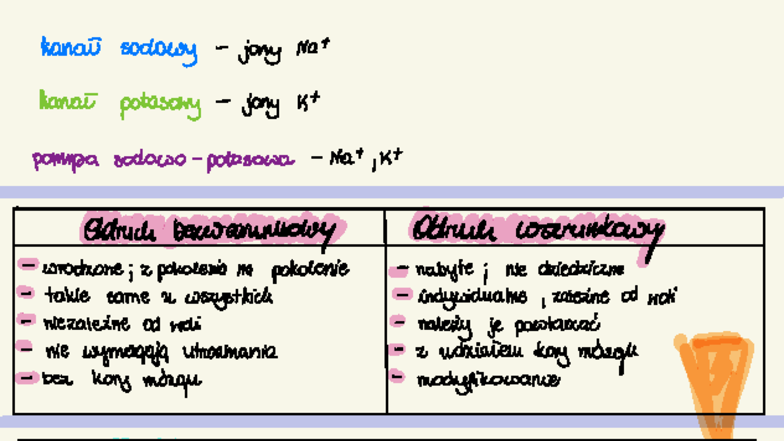 kanał sodowy – jony Na⁺
kanał potasowy – jony K⁺
pompa sodowo-potasowa – Na⁺, K⁺
Odruch bezwarunkowy
– wrodzone; z pokolenia na pokolenie
– takie same u wszystkich
– niezależne od woli
– nie wymagają utrwalania
– bez kory mózgu
Odruch warunkowy
– nabyte; nie dziedziczne
– indywidualne, zależne od woli
– należy je powtarzać
– z udziałem kory mózgu
– modyfikowanie